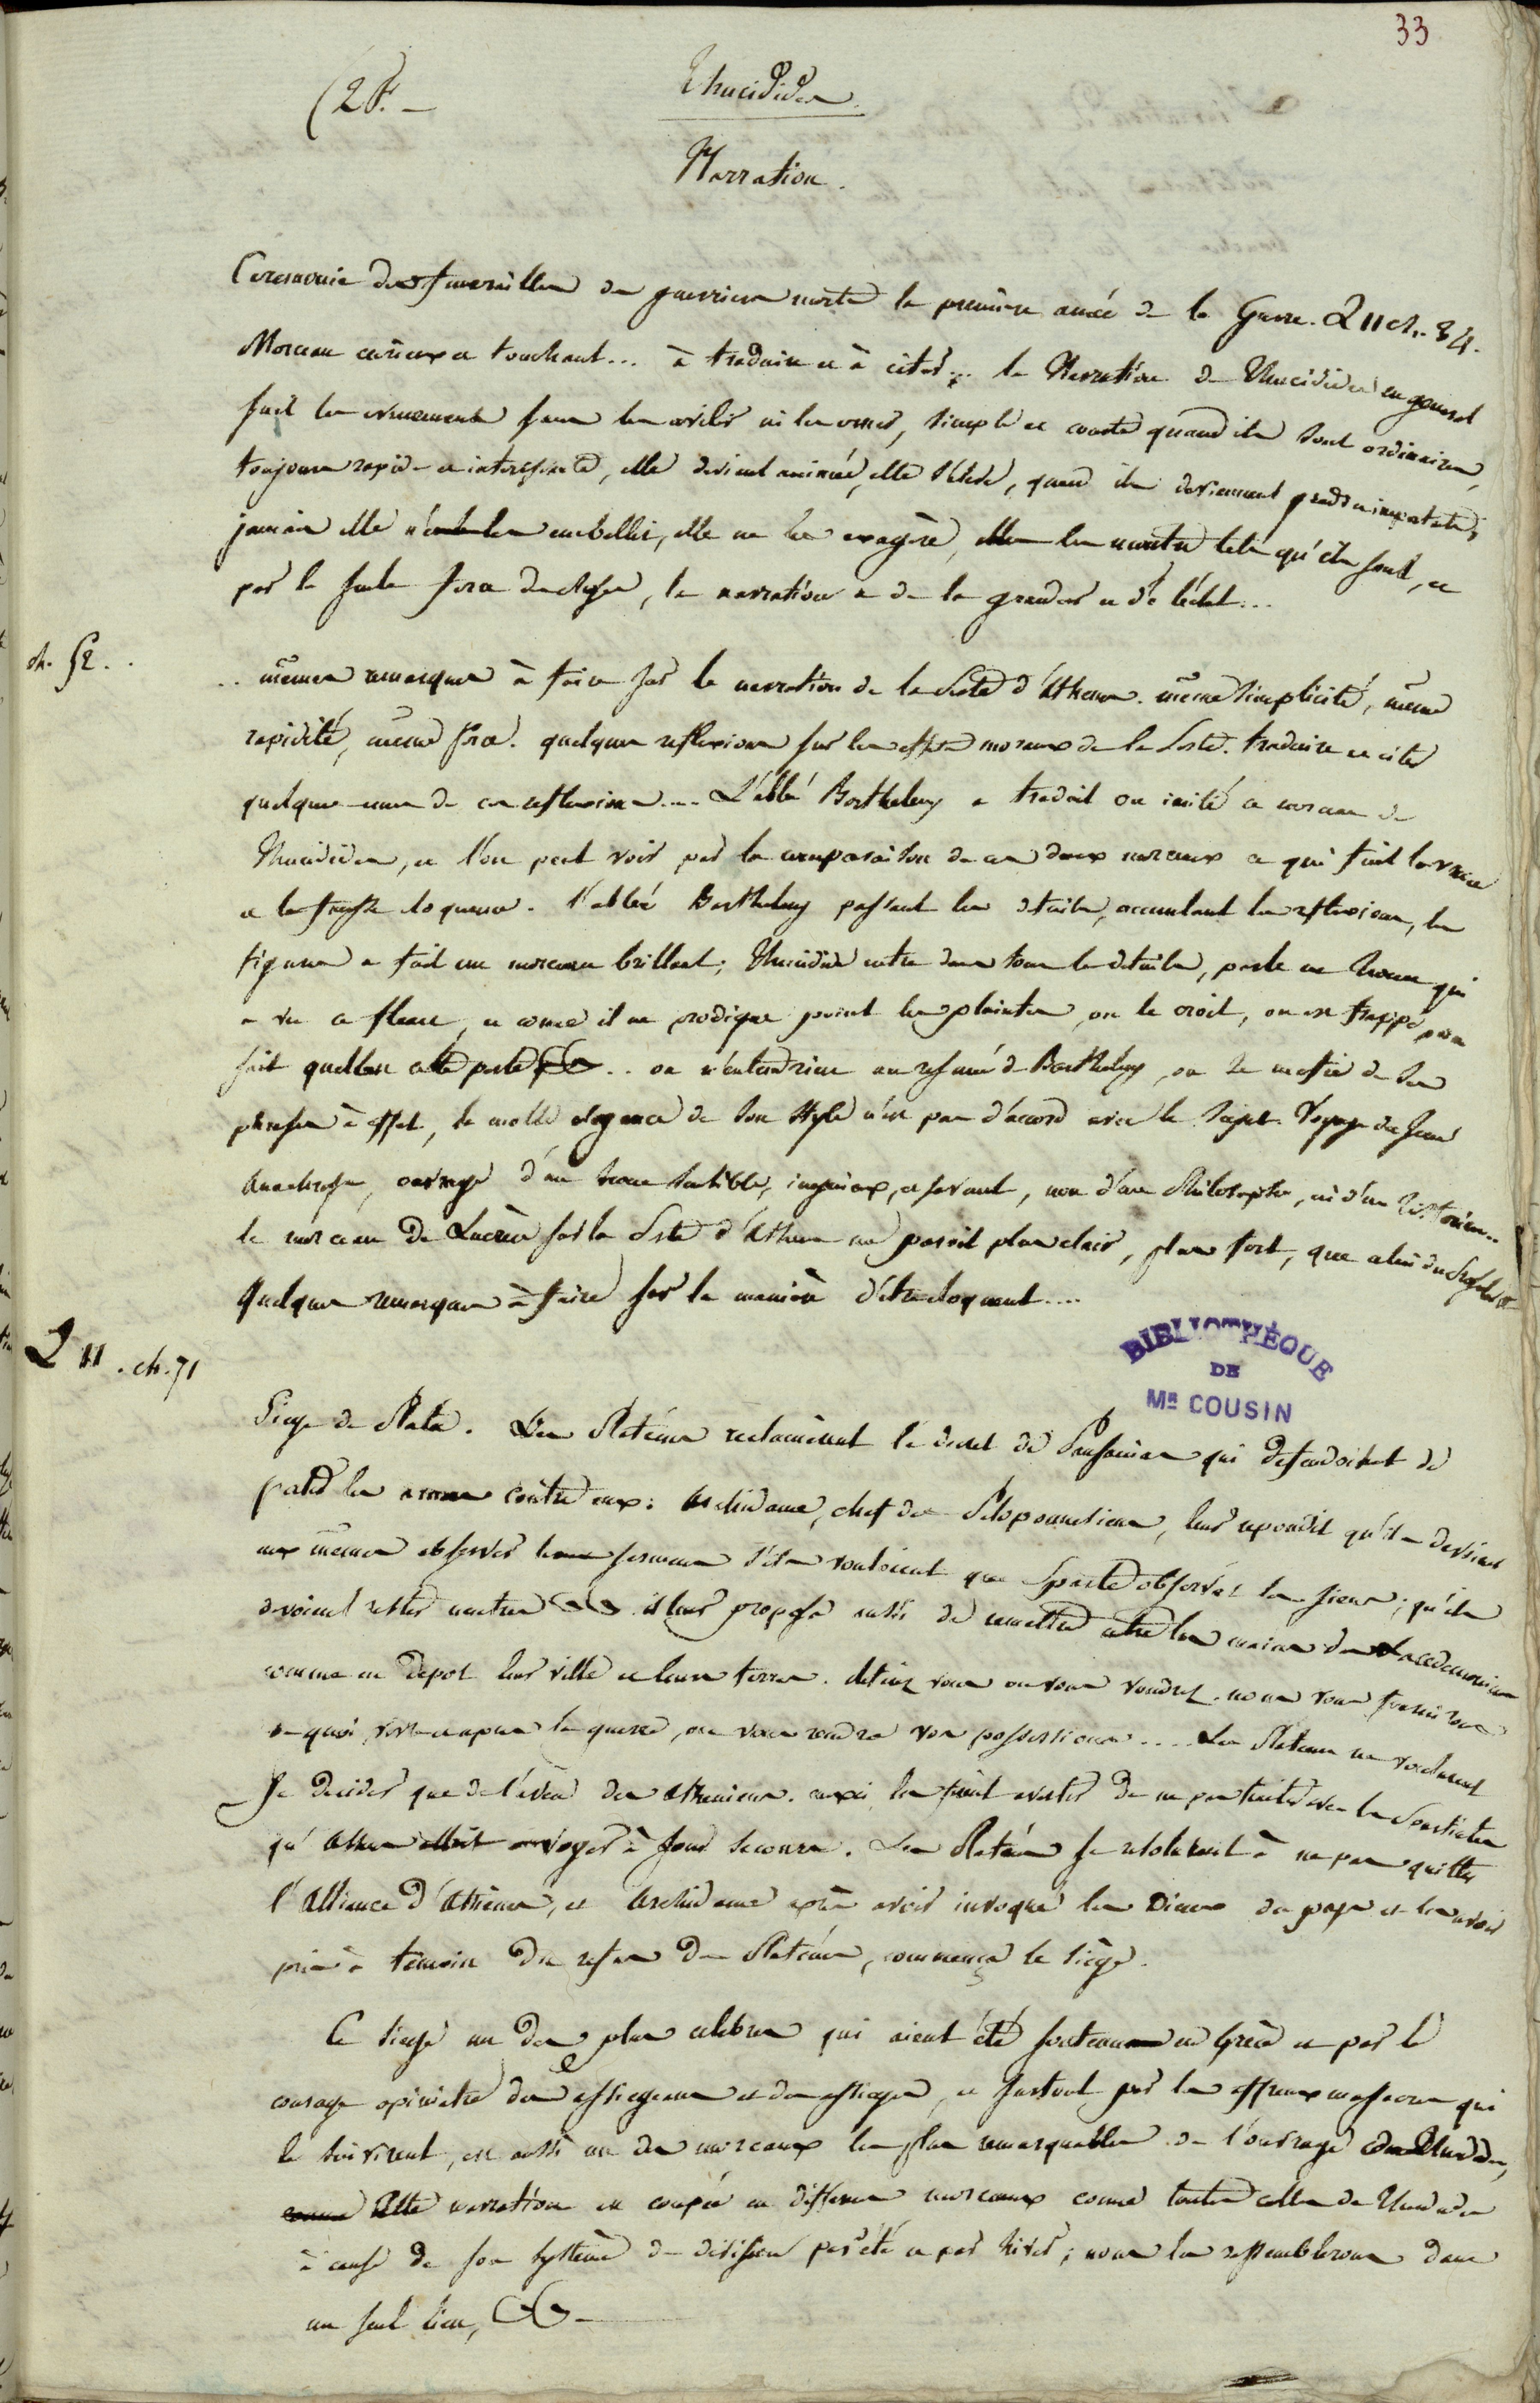 33
(28. —
Thucidides.
Narration.
Ceremonie des funerailles des guerriers morts la premiere année de la Guerre. L II ch. 34.
Morceau curieux et touchant... à traduire et à citer... la Narration de Thucidides en general
suit les evenements sans les avilir ni les orner, simple et courte quand ils sont ordinaires,
toujours rapide et interessante, elle devient animée, elle s'eleve, quand ils deviennent grands et importants;
jamais elle n'embellit, elle ne les exagère, elle les montre tels qu'ils sont, et
par la seule force des choses, la narration a de la grandeur et de l'éclat...
ch. 52. .
.. mêmes remarques à faire sur la narration de la Peste d'Athenes. même simplicité, même
rapidité, même force. quelques reflexions sur les effets moraux de la Peste. traduire et citer
quelques-unes de ces reflexions.... L'abbé Barthelemy a traduit ou imité ce morceau de
Thucidides, et l'on peut voir par la comparaison de ces deux morceaux ce qui fait la vraie
et la fausse eloquence. l'abbé Barthelemy passant les details, accumulant les reflexions, les
figures a fait un morceau brillant; Thucidide entre dans tous les details, parle en homme qui
a vu ce fleau, et comme il ne prodigue point les plaintes, on le croit, on est frappé
.. on n'entend rien au resumé de Barthelemy, on se mefie de ses
phrases à effet, la molle elegance de son style n'est pas d'accord avec le sujet. Voyage du Jeune
Anacharsis, ouvrage d'un homme sensible, ingenieux, et savant, non d'un Philosophe, ni d'un historien..
le morceau de Lucrèce sur la Peste d'Athenes me paroit plus clair, plus fort, que celui du
Quelques remarques à faire sur la manière d'être eloquent....
BIBLIOTHÈQUE
DE
MR COUSIN
L II . ch. 71
Siege de Platée. Les Platéens reclamèrent le decret de Pausanias qui defendoit de
porter les armes contre eux: Archidame, chef des Peloponnesiens, leur repondit qu'ils devoient
eux mêmes observer leurs sermens s'ils vouloient que Sparte observât les siens; qu'ils
devoient rester neutres &c. il leur proposa aussi de remettre entre les mains des Lacedemoniens
comme en depot leur ville et leurs terres. retirez vous ou vous voudrez. nous vous fournirons
de quoi vivre et apres la guerre, on vous rendra vos possessions.... Les Platéens ne voulurent
se decider que de l'aveu des Atheniens. ceux ci les firent avertir de ne pas traiter avec les Spartiates
qu'Athenes alloit envoyer à leur secours. Les Platéens se resolurent à ne pas quitter
l'Alliance d'Athènes, et Archidame après avoir invoqué les Dieux du pays et les avoir
pris à temoin du refus des Platéens, commença le siège.
Ce siege un des plus celebres qui aient été soutenus en Grèce et par le
courage opiniatre des assiegeans et des assiegés, et surtout par les affreux massacres qui
le suivirent, est aussi un des morceaux les plus remarquables de l'ouvrage de Thucidides,
Cette narration est coupée en differens morceaux comme toutes celles de Thucidides
à cause de son système de division par été et par hiver; nous les rassemblerons dans
un seul lieu, &c —